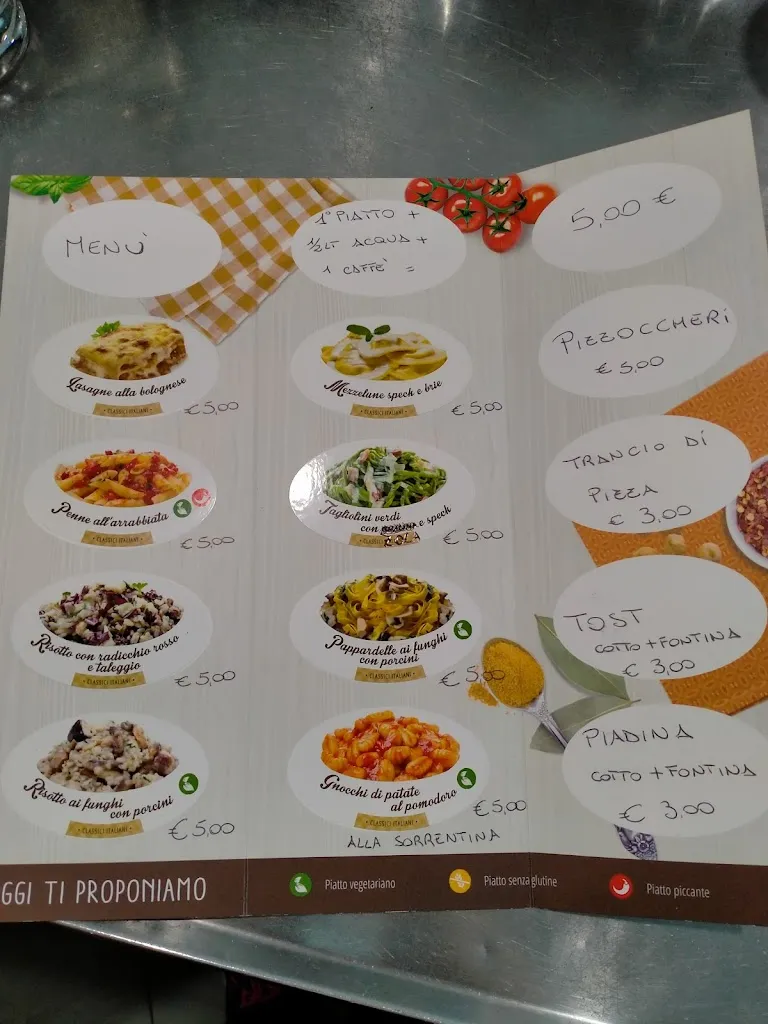 MENÙ
1° PIATTO +
1/2 LT ACQUA +
1 CAFFÈ =
5,00 €
Lasagne alla bolognese
• CLASSICI ITALIANI •
€ 5,00
Mezzelune speck e brie
• CLASSICI ITALIANI •
€ 5,00
PIZZOCCHERI
€ 5,00
Penne all'arrabbiata
• CLASSICI ITALIANI •
€ 5,00
Tagliolini verdi
con e speck
• CLASSICI ITALIANI •
€ 5,00
TRANCIO DI
PIZZA
€ 3,00
Risotto con radicchio rosso
e taleggio
• CLASSICI ITALIANI •
€ 5,00
Pappardelle ai funghi
con porcini
• CLASSICI ITALIANI •
€ 5,00
TOST
COTTO + FONTINA
€ 3,00
Risotto ai funghi
con porcini
• CLASSICI ITALIANI •
€ 5,00
Gnocchi di patate
al pomodoro
• CLASSICI ITALIANI •
€ 5,00
ALLA SORRENTINA
PIADINA
COTTO + FONTINA
€ 3,00
GGI TI PROPONIAMO
Piatto vegetariano
Piatto senza glutine
Piatto piccante